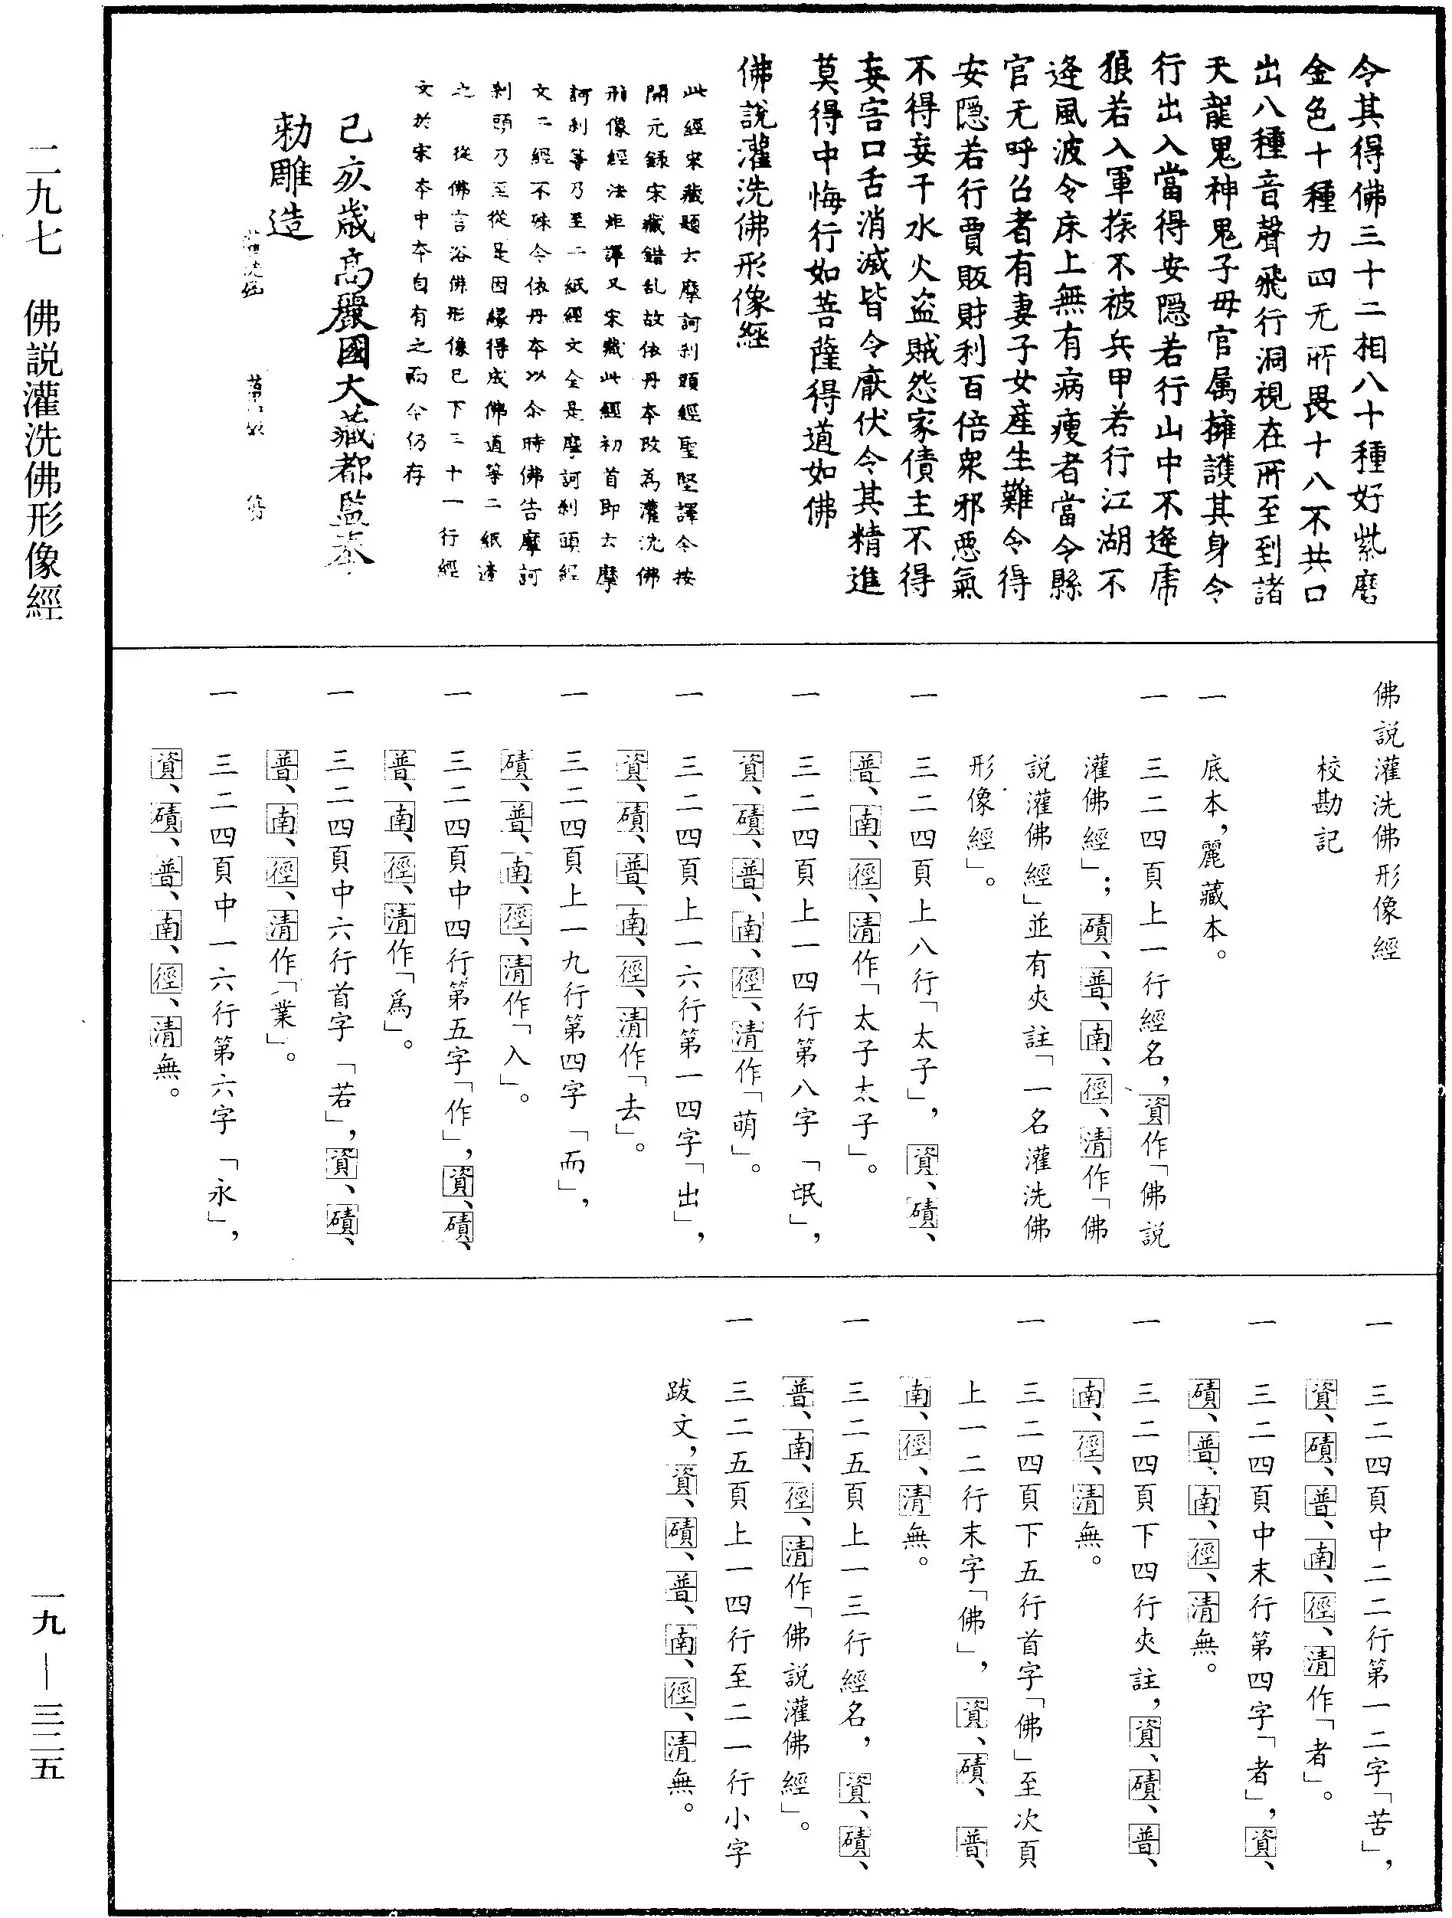 令其得佛三十二相八十種好紫磨
金色十種力四无所畏十八不共口
出八種音聲飛行洞視在所至到諸
天龍鬼神鬼子母官属擁護其身令
行出入當得安隐若行山中不逢虎
狼若入軍掞不被兵甲若行江湖不
逢風波令床上無有病瘦者當令縣
官无呼召者有妻子女産生難令得
安隐若行賈販財利百倍衆邪惡氣
不得妄干水火盗賊怨家債主不得
妄害口舌消滅皆令猒伏令其精進
莫得中悔行如菩薩得道如佛
佛說灌洗佛形像經
此經宋藏題云摩訶刹頭經聖堅譯今按
開元録宋藏錯乱故依丹本改為灌洗佛
形像經法炬譯又宋藏此經初首即云摩
訶刹等乃至二紙經文全是摩訶刹頭經
文二經不殊今依丹本以尒時佛告摩訶
刹頭乃至從是因縁得成佛道等二紙遠
之 從佛言浴佛形像已下三十一行經
文於宋本中本自有之而今仍存
己亥歲高麗國大藏都監奉
勅雕造
二九七 佛説灌洗佛形像經
佛説灌洗佛形像經
校勘記
一 底本，麗藏本。
一 三二四頁上一行經名，資作「佛説
灌佛經」；磧、普、南、徑、清作「佛
説灌佛經」並有夾註「一名灌洗佛
形像經」。
一 三二四頁上八行「太子」，資、磧、
普、南、徑、清作「太子太子」。
一 三二四頁上一四行第八字「氓」，
資、磧、普、南、徑、清作「萌」。
一 三二四頁上一六行第一四字「出」，
資、磧、普、南、徑、清作「去」。
一 三二四頁上一九行第四字「而」，
磧、普、南、徑、清作「入」。
一 三二四頁中四行第五字「作」，資、磧、
普、南、徑、清作「爲」。
一 三二四頁中六行首字「若」，資、磧、
普、南、徑、清作「業」。
一 三二四頁中一六行第六字「永」，
資、磧、普、南、徑、清無。
一 三二四頁中二二行第一二字「苦」，
資、磧、普、南、徑、清作「者」。
一 三二四頁中末行第四字「者」，資、
磧、普、南、徑、清無。
一 三二四頁下四行夾註，資、磧、普、
南、徑、清無。
一 三二四頁下五行首字「佛」至次頁
上一二行末字「佛」，資、磧、普、
南、徑、清無。
一 三二五頁上一三行經名，資、磧、
普、南、徑、清作「佛説灌佛經」。
一 三二五頁上一四行至二一行小字
跋文，資、磧、普、南、徑、清無。
一九—三二五